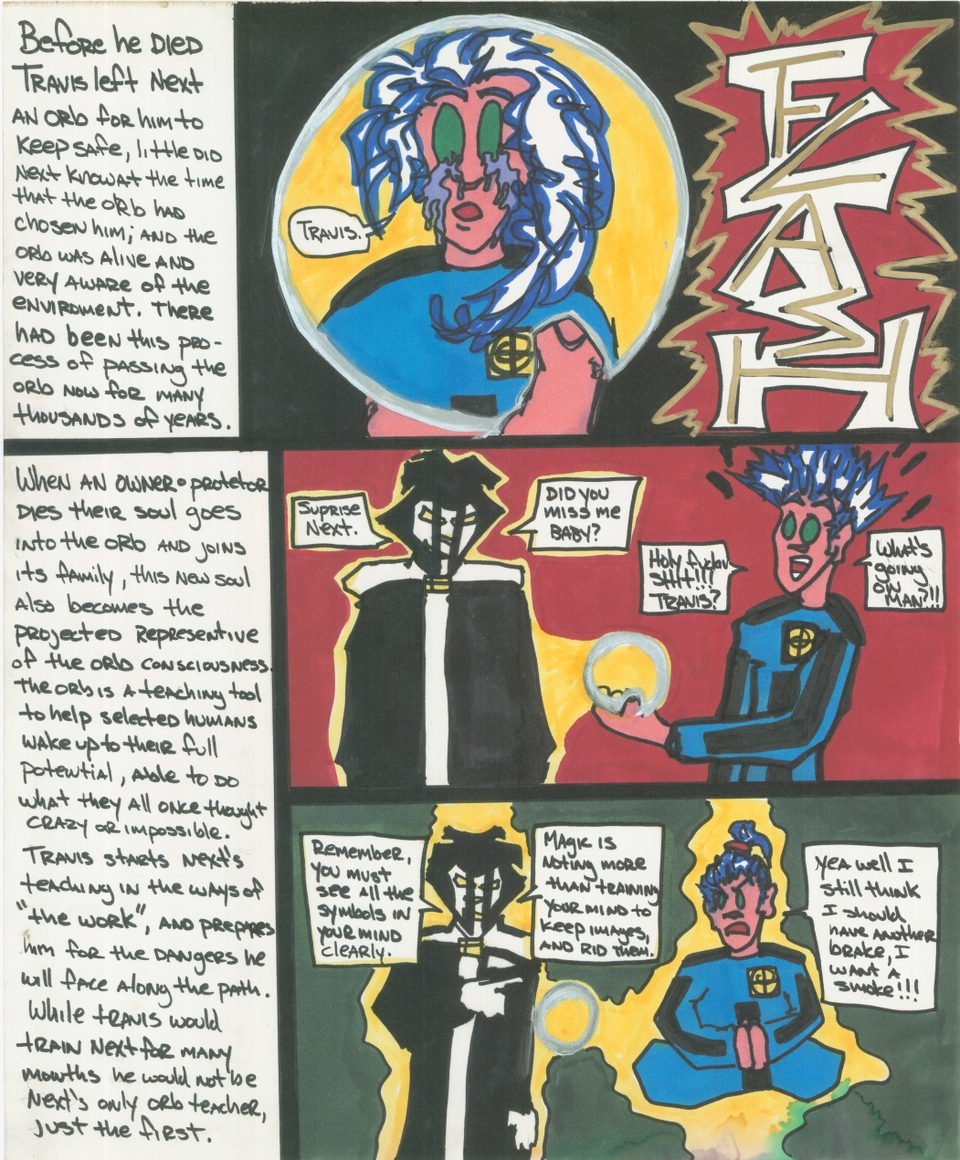 Before he DIED
TRAVIS left Next
AN ORb for him to
Keep safe, little DID
Next Know at the time
that the ORb had
chosen him; AND the
ORb WAS Alive AND
very Aware of the
enviroment. There
HAD been this pro-
cess of passing the
ORb NOW for MANY
thousands of years.
TRAVIS.
FLASH
When AN OWNER o protetor
Dies their soul goes
into the orb AND joins
its family, this new soul
Also becomes the
projected Representive
of the ORb consciousness.
The orb is A teaching tool
to help selected humans
wake up to their full
potential, Able to DO
what they all once thought
CRAZY OR impossible.
TRAVIS starts Next's
teaching in the ways of
"the work", AND prepares
him for the DANgers he
will face Along the path.
While TRAVIS would
TRAIN Next for MANY
months he would not be
Next's only ORb teacher,
just the first.
SUPRISE
NEXT.
DID you
miss me
BABY?
Holy
SHit!!!
TRAVIS?
What's
going
ON
MAN?!!
Remember,
you must
see All the
symbols in
your mind
clearly.
MAgic is
Noting more
than training
your mind to
keep images,
AND RID them.
Yea well I
still think
I should
have Another
brake, I
want A
smoke!!!